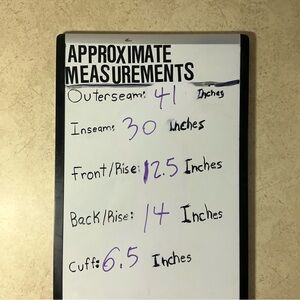 APPROXIMATE
MEASUREMENTS
Outerseam: 41 Inches
Inseam: 30 Inches
Front/Rise: 12.5 Inches
Back/Rise: 14 Inches
Cuff: 6.5 Inches